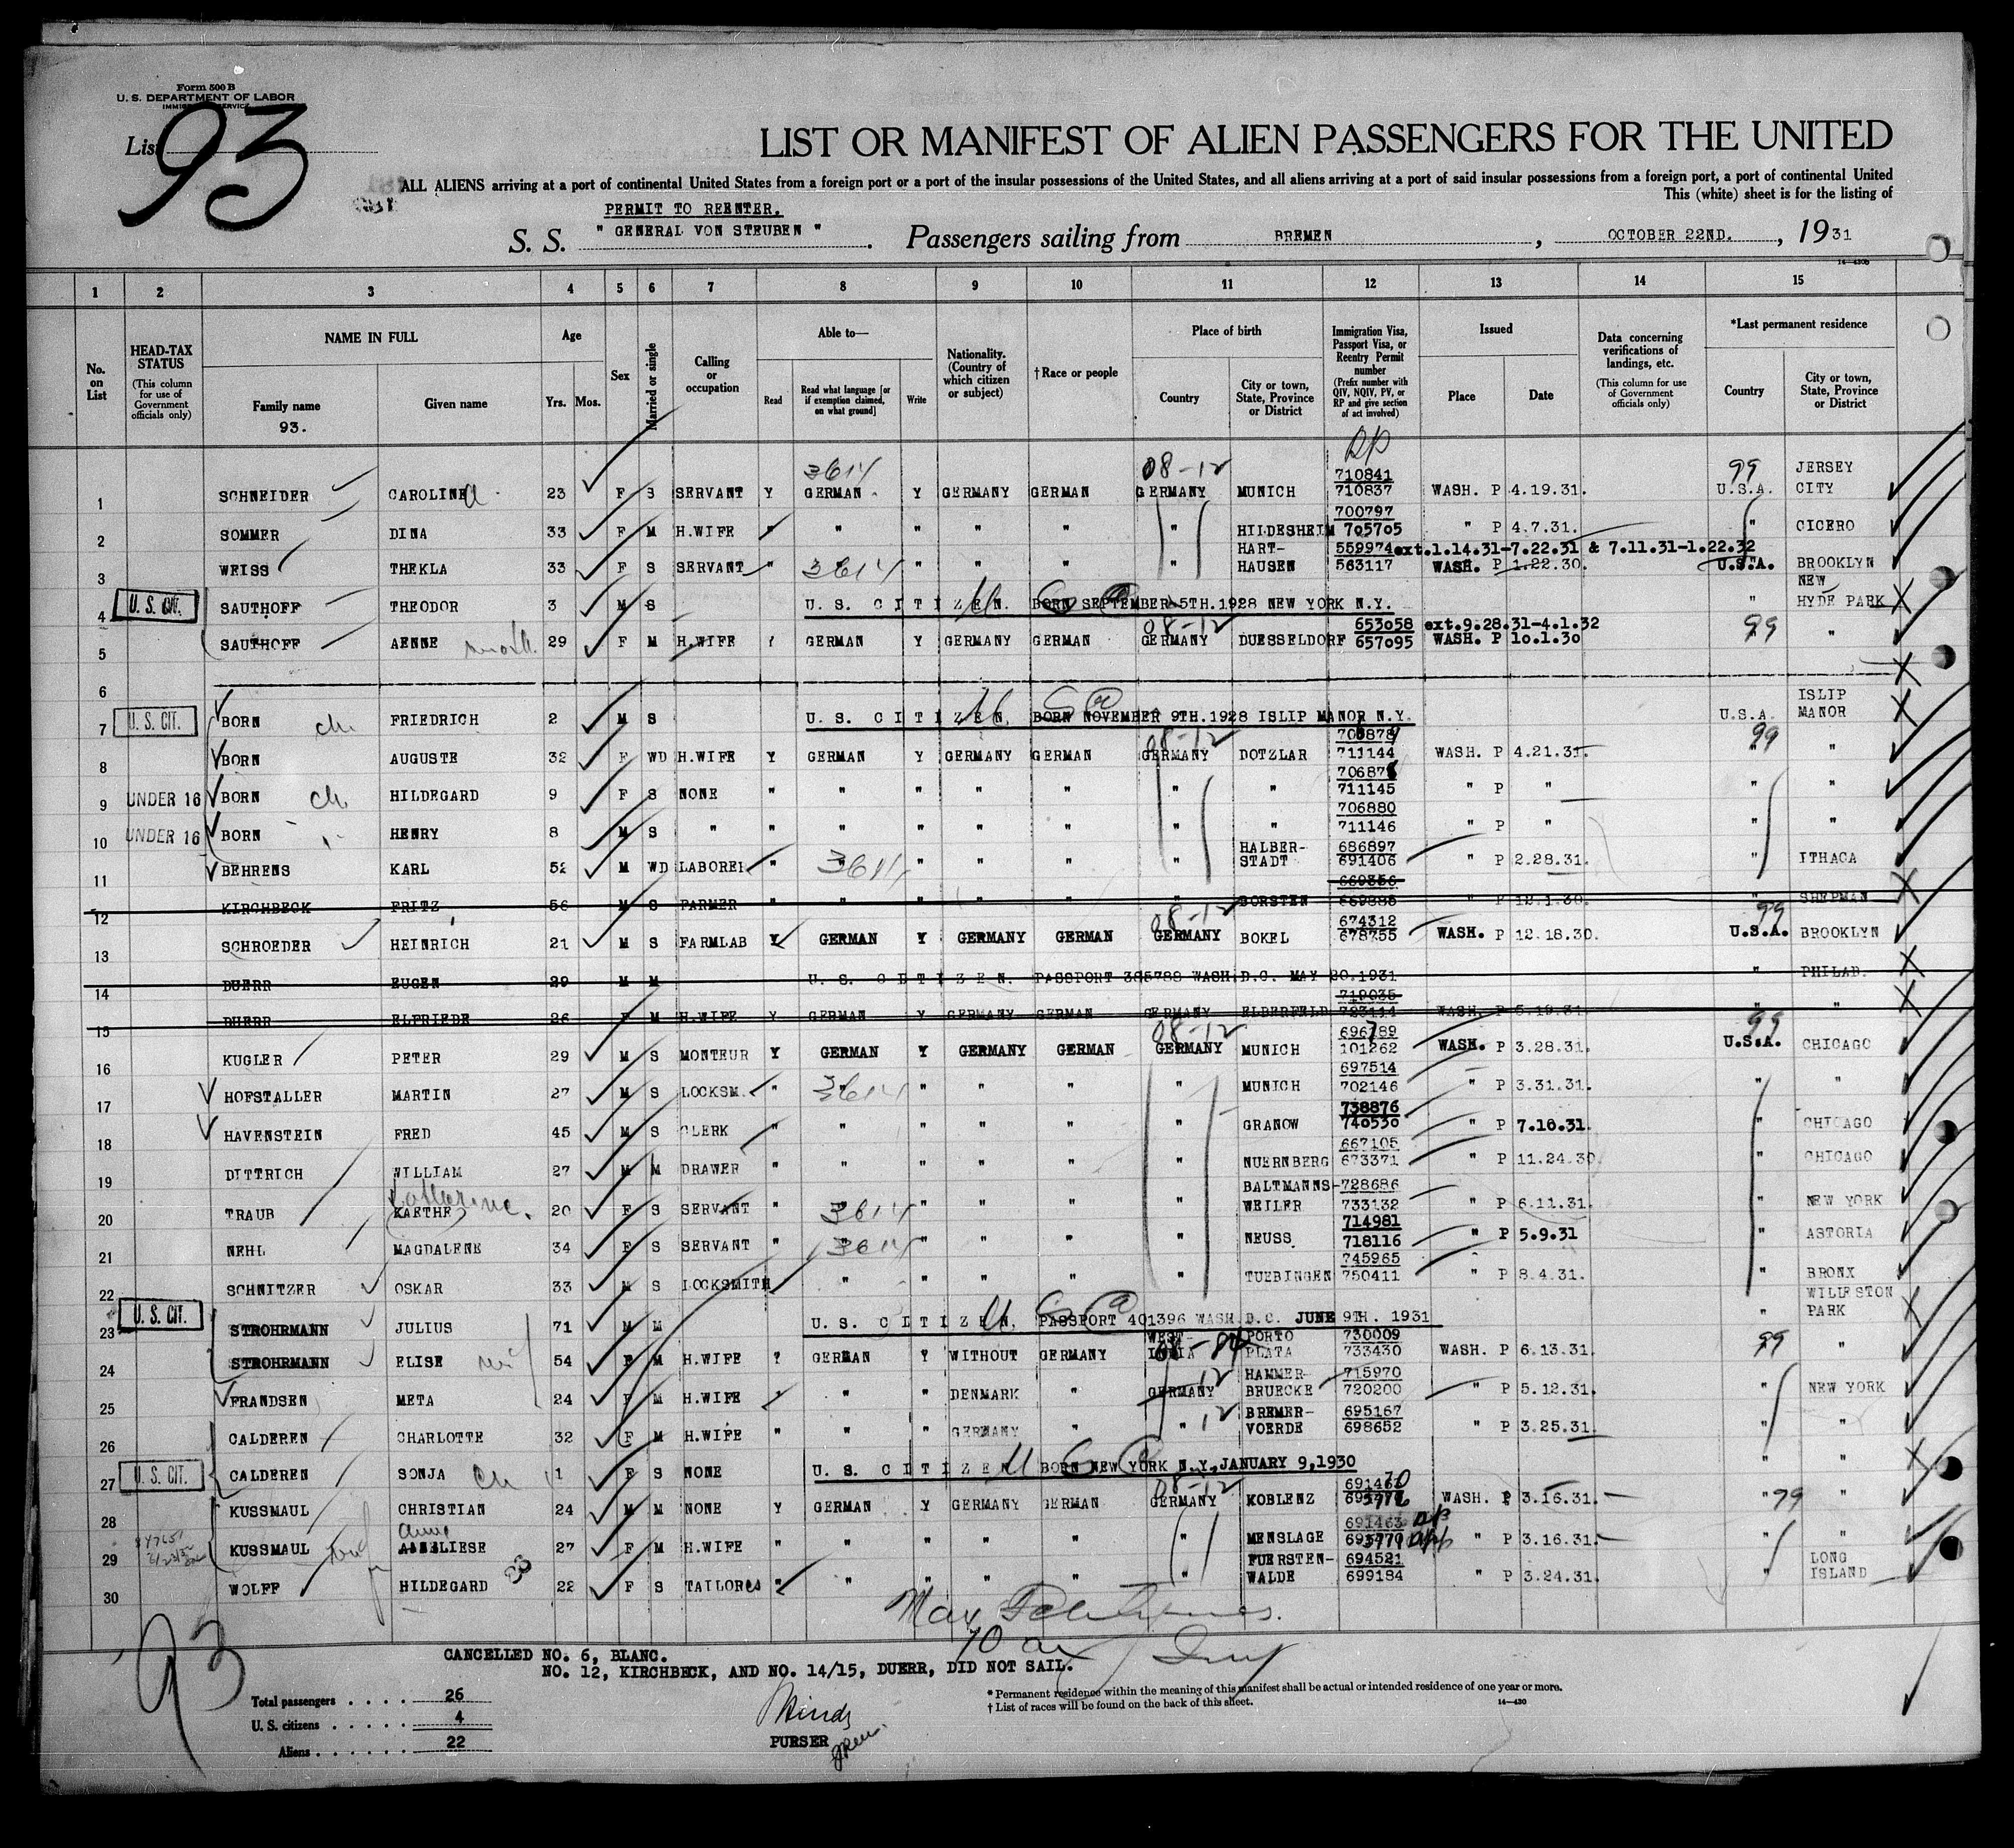 Form 500 B
U. S. DEPARTMENT OF LABOR
IMMIGRATION SERVICE
List 93
LIST OR MANIFEST OF ALIEN PASSENGERS FOR THE UNITED
ALL ALIENS arriving at a port of continental United States from a foreign port or a port of the insular possessions of the United States, and all aliens arriving at a port of said insular possessions from a foreign port, a port of continental United
This (white) sheet is for the listing of
PERMIT TO REENTER.
S. S. " GENERAL VON STEUBEN " . Passengers sailing from BREMEN , OCTOBER 22ND. , 1931
14—430b
1 2 3 4 5 6 7 8 9 10 11 12 13 14 15
No. on List
HEAD-TAX STATUS (This column for use of Government officials only)
NAME IN FULL
Family name
93.
Given name
Age
Yrs. Mos.
Sex
Married or single
Calling or occupation
Able to—
Read
Read what language [or if exemption claimed, on what ground]
Write
Nationality. (Country of which citizen or subject)
†Race or people
Place of birth
Country
City or town, State, Province or District
Immigration Visa, Passport Visa, or Reentry Permit number (Prefix number with QIV, NQIV, PV, or RP and give section of act involved)
Issued
Place
Date
Data concerning verifications of landings, etc. (This column for use of Government officials only)
*Last permanent residence
Country
City or town, State, Province or District
RP
3614 08-12 710841 99 JERSEY
1 SCHNEIDER CAROLINE 23 F S SERVANT Y GERMAN Y GERMANY GERMAN GERMANY MUNICH 710837 WASH. P 4.19.31. U.S.A. CITY
700797
2 SOMMER DINA 33 F M H.WIFE " " " " " " HILDESHEIM 705705 " P 4.7.31. " CICERO
HART- 559974 ext.1.14.31-7.22.31 & 7.11.31-1.22.32
3 WEISS THEKLA 33 F S SERVANT " 3614 " " " " HAUSEN 563117 WASH. P 1.22.30. U.S.A. BROOKLYN
NEW
4 U. S. CIT. SAUTHOFF THEODOR 3 M S U. S. CITIZEN. BORN SEPTEMBER 5TH.1928 NEW YORK N.Y. " HYDE PARK
08-12 653058 ext.9.28.31-4.1.32 99
5 SAUTHOFF AENNE 29 F M H.WIFE Y GERMAN Y GERMANY GERMAN GERMANY DUESSELDORF 657095 WASH. P 10.1.30 "
6
ISLIP
7 U. S. CIT. BORN ch FRIEDRICH 2 M S U. S. CITIZEN. BORN NOVEMBER 9TH.1928 ISLIP MANOR N.Y. U.S.A. MANOR
08-12 99
8 BORN AUGUSTE 32 F WD H.WIFE Y GERMAN Y GERMANY GERMAN GERMANY DOTZLAR 711144 WASH. P 4.21.31. " "
9 UNDER 16 BORN ch HILDEGARD 9 F S NONE " " " " " " " 711145 " P " " "
706880
10 UNDER 16 BORN HENRY 8 M S " " " " " " " " 711146 " P " " "
HALBER- 686897
11 BEHRENS KARL 52 M WD LABORER " 3614 " " " " STADT 691406 " P 2.28.31. " ITHACA
669356
12 KIRCHBECK FRITZ 56 M S FARMER " " " " " " BORSTEN " P 12.1.30. " SHEPMAN
08-12 674312 99
13 SCHROEDER HEINRICH 21 M S FARMLAB Y GERMAN Y GERMANY GERMAN GERMANY BOKEL 678755 WASH. P 12.18.30. U.S.A. BROOKLYN
14 DUERR EUGEN 29 M M U. S. CITIZEN. PASSPORT 385788 WASH.D.C. MAY 20.1931 " PHILAD.
719035
15 DUERR ELFRIEDE 26 F M H.WIFE Y GERMAN Y GERMANY GERMAN GERMANY ELBERFELD 723114 WASH. P 5.19.31. " "
08-12 99
16 KUGLER PETER 29 M S MONTEUR Y GERMAN Y GERMANY GERMAN GERMANY MUNICH 101262 WASH. P 3.28.31. U.S.A. CHICAGO
697514
17 HOFSTALLER MARTIN 27 M S LOCKSM. " 3614 " " " " MUNICH 702146 " P 3.31.31. " "
738876
18 HAVENSTEIN FRED 45 M S CLERK " " " " " " GRANOW 740530 " P 7.10.31. " CHICAGO
667105
19 DITTRICH WILLIAM 27 M M DRAWER " " " " " " NUERNBERG 673371 " P 11.24.30 " CHICAGO
Katherine. BALTMANNS- 728686
20 TRAUB KAETHE 20 F S SERVANT " 3614 " " " " WEILER 733132 " P 6.11.31. " NEW YORK
714981
21 NEHL MAGDALENE 34 F S SERVANT " 3614 " " " " NEUSS 718116 " P 5.9.31 " ASTORIA
745965
22 SCHNITZER OSKAR 33 M S LOCKSMITH " " " " " TUEBINGEN 750411 " P 8.4.31. " BRONX
WILLISTON
23 U. S. CIT. STROHRMANN JULIUS 71 M M U. S. CITIZEN. PASSPORT 401396 WASH.D.C. JUNE 9TH. 1931 " PARK
WEST- PORTO 730009 99
24 STROHRMANN ELISE 54 F M H.WIFE Y GERMAN Y WITHOUT GERMANY INDIA PLATA 733430 WASH. P 6.13.31. "
HAMMER- 715970
25 FRANDSEN META 24 F M H.WIFE " " " DENMARK " GERMANY 12 BRUECKE 720200 " P 5.12.31. " NEW YORK
BREMER- 695167
26 CALDEREN CHARLOTTE 32 F M H.WIFE " " " GERMANY " " 12 VOERDE 698652 " P 3.25.31. " "
27 U. S. CIT. CALDEREN SONJA ch 1 F S NONE U. S. CITIZEN BORN NEW YORK N.Y. JANUARY 9,1930 " "
08-12
28 KUSSMAUL CHRISTIAN 24 M M NONE Y GERMAN Y GERMANY GERMAN GERMANY KOBLENZ WASH. P 3.16.31. " 99 "
691463
29 KUSSMAUL ANNELIESE 27 F M H.WIFE " " " " " " MENSLAGE " P 3.16.31. " "
FUERSTEN- 694521 LONG
30 WOLFF HILDEGARD 22 F S TAILORES " " " " " " WALDE 699184 " P 3.24.31. " ISLAND
93
CANCELLED NO. 6, BLANC.
NO. 12, KIRCHBECK, AND NO. 14/15, DUERR, DID NOT SAIL.
Total passengers . . . . 26
U. S. citizens . . . . . 4
Aliens . . . . . . 22
PURSER
* Permanent residence within the meaning of this manifest shall be actual or intended residence of one year or more.
† List of races will be found on the back of this sheet.
14—430